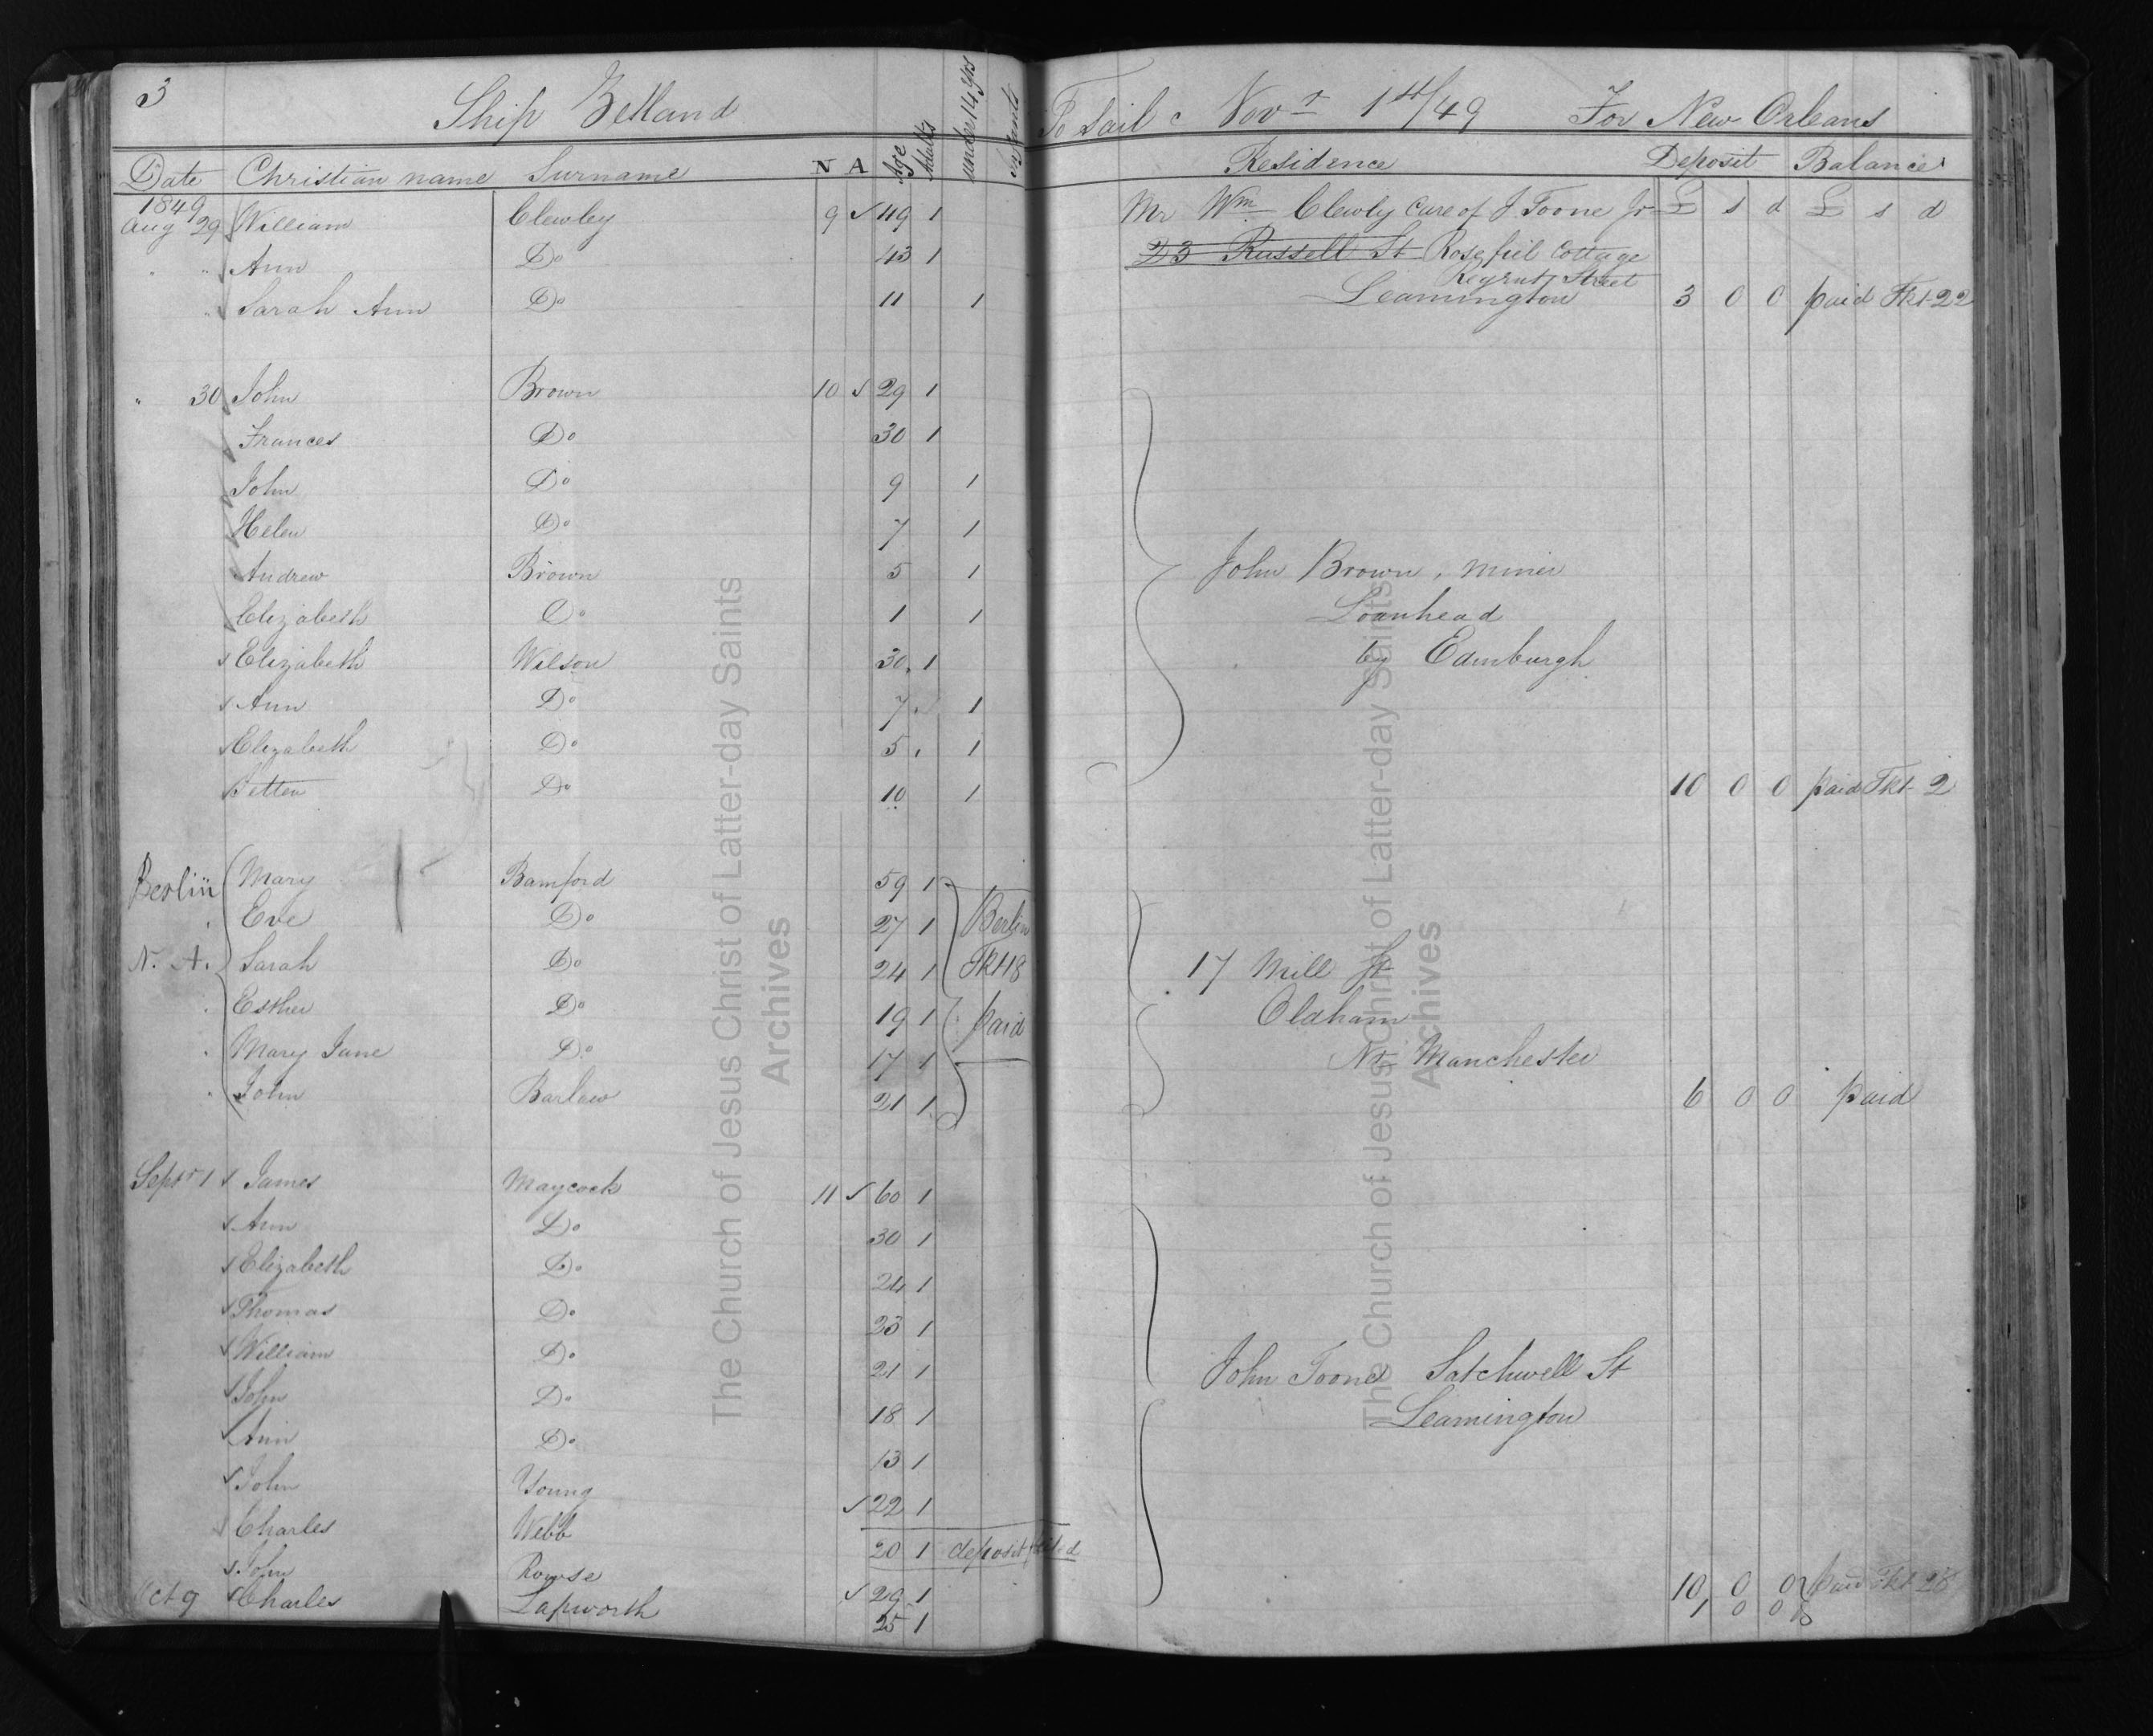 3 Ship Zetland Adults under 14 yrs infants To Sail Novr 1st/49 For New Orleans
Date Christian name Surname N A Age Residence Deposit Balance
1849 £ s d £ s d
Aug 29 William Clewley 9 ✓ 49 1 Mr Wm Clewly Care of J. Toone Jr
" " Ann Do 43 1 23 Russell St Cottage
Street
" Sarah Ann Do 11 1 Leamington 3 0 0 paid Tkt 22
" 30 John Brown 10 ✓ 29 1
Frances Do 30 1
John Do 9 1
Helen Do 7 1
Andrew Brown 5 1 John Brown, miner
Elizabeth Do 1 1 Loanhead
Elizabeth Wilson 30 1 by Edinburgh
Ann Do 7 1
Elizabeth Do 5 1
Do 10 1 10 0 0 paid Tkt 2
Berlin Mary Bamford 59 1
Eve Do 27 1 Berlin
N. A. Sarah Do 24 1 Tkt 18 17 Mill St
Esther Do 19 1 paid Oldham
Mary Jane Do 17 1 Nr Manchester
John Barlow 21 1 6 0 0 paid
Septr 1 James Maycock 11 ✓ 60 1
Ann Do 30 1
Elizabeth Do 24 1
Thomas Do 23 1
William Do 21 1 John Toone Satchwell St
John Do 18 1 Leamington
Ann Do 13 1
John Young ✓ 22 1
Charles Webb 20 1 deposit
John Rowse ✓ 29 1 10 0 0 paid Tkt 28
Oct 9 Charles Lapworth 25 1 1 0 0
The Church of Jesus Christ of Latter-day Saints
Archives
The Church of Jesus Christ of Latter-day Saints
Archives